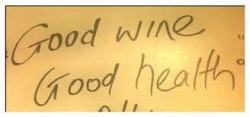 "Good wine
Good health"